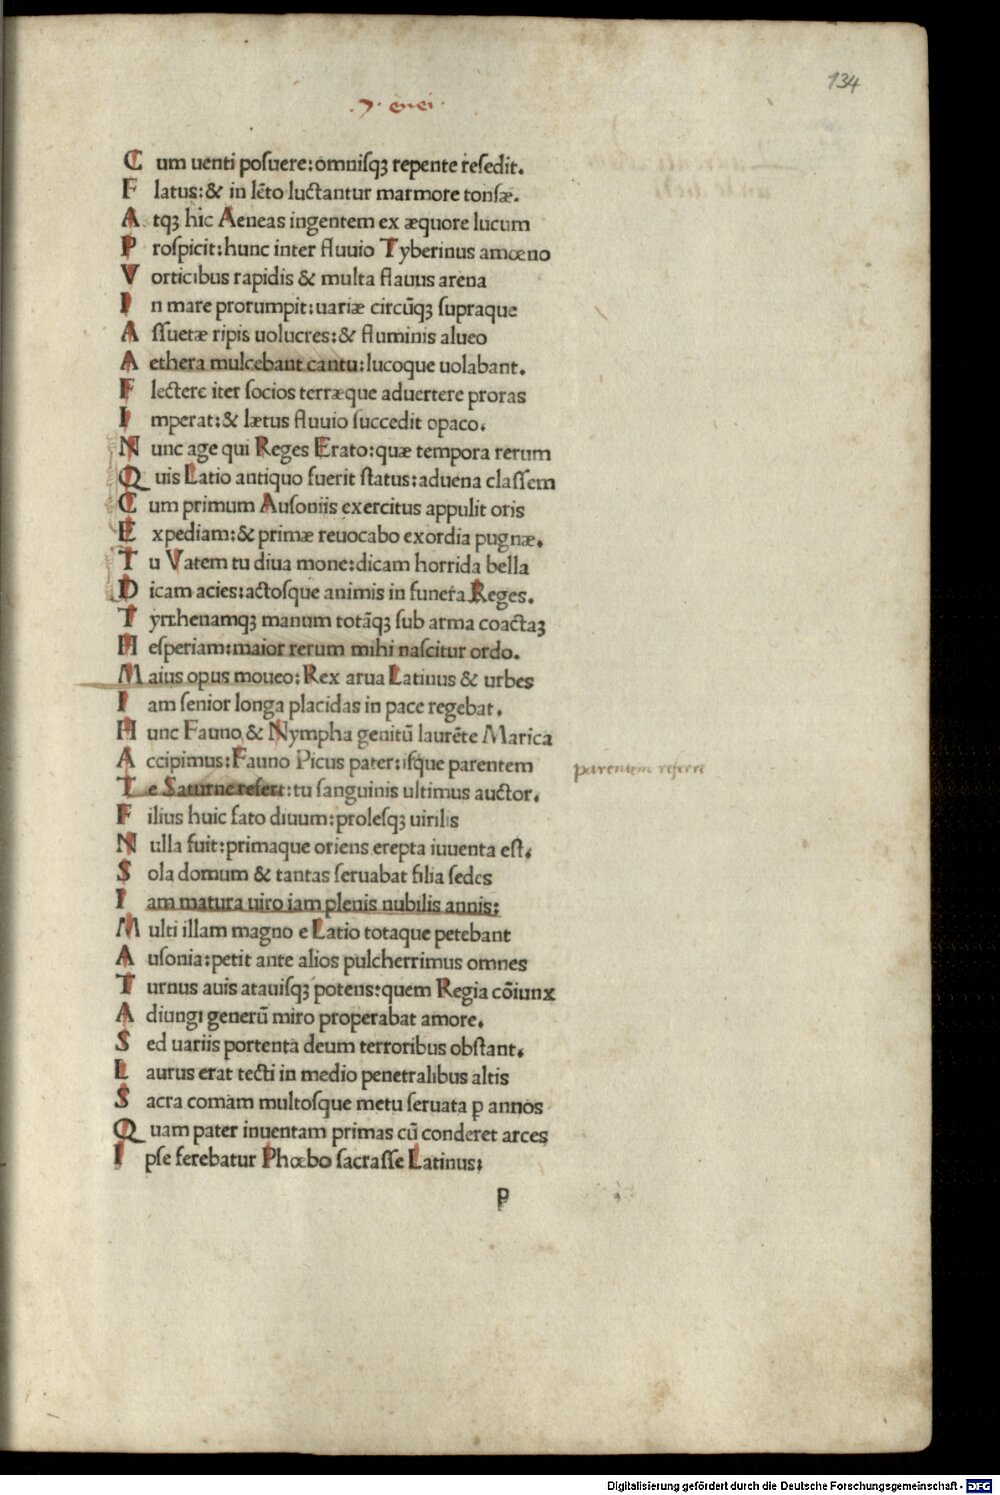 134
.7. enei.
Cum uenti posuere: omnisqꝫ repente resedit.
Flatus: & in lēto luctantur marmore tonsæ.
Atqꝫ hic Aeneas ingentem ex æquore lucum
Prospicit: hunc inter fluuio Tyberinus amœno
Vorticibus rapidis & multa flauus arena
In mare prorumpit: uariæ circūqꝫ supraque
Assuetæ ripis uolucres: & fluminis alueo
Aethera mulcebant cantu: lucoque uolabant.
Flectere iter socios terræque aduertere proras
Imperat: & lætus fluuio succedit opaco.
Nunc age qui Reges Erato: quæ tempora rerum
Quis Latio antiquo fuerit status: aduena classem
Cum primum Ausoniis exercitus appulit oris
Expediam: & primæ reuocabo exordia pugnæ.
Tu Vatem tu diua mone: dicam horrida bella
Dicam acies: actosque animis in funera Reges.
Tyrrhenamqꝫ manum totāqꝫ sub arma coactaꝫ
Hesperiam: maior rerum mihi nascitur ordo.
Maius opus moueo: Rex arua Latinus & urbes
Iam senior longa placidas in pace regebat.
Hunc Fauno & Nympha genitū laurēte Marica
Accipimus: Fauno Picus pater: isque parentem
parentem refert
Te Saturne refert: tu sanguinis ultimus auctor.
Filius huic fato diuum: prolesqꝫ uirilis
Nulla fuit: primaque oriens erepta iuuenta est.
Sola domum & tantas seruabat filia sedes
Iam matura uiro iam plenis nubilis annis:
Multi illam magno e Latio totaque petebant
Ausonia: petit ante alios pulcherrimus omnes
Turnus auis atauisqꝫ potens: quem Regia cōiunx
Adiungi generū miro properabat amore.
Sed uariis portenta deum terroribus obstant.
Laurus erat tecti in medio penetralibus altis
Sacra comam multosque metu seruata ꝑ annos
Quam pater inuentam primas cū conderet arces
Ipse ferebatur Phœbo sacrasse Latinus:
p
Digitalisierung gefördert durch die Deutsche Forschungsgemeinschaft - DFG